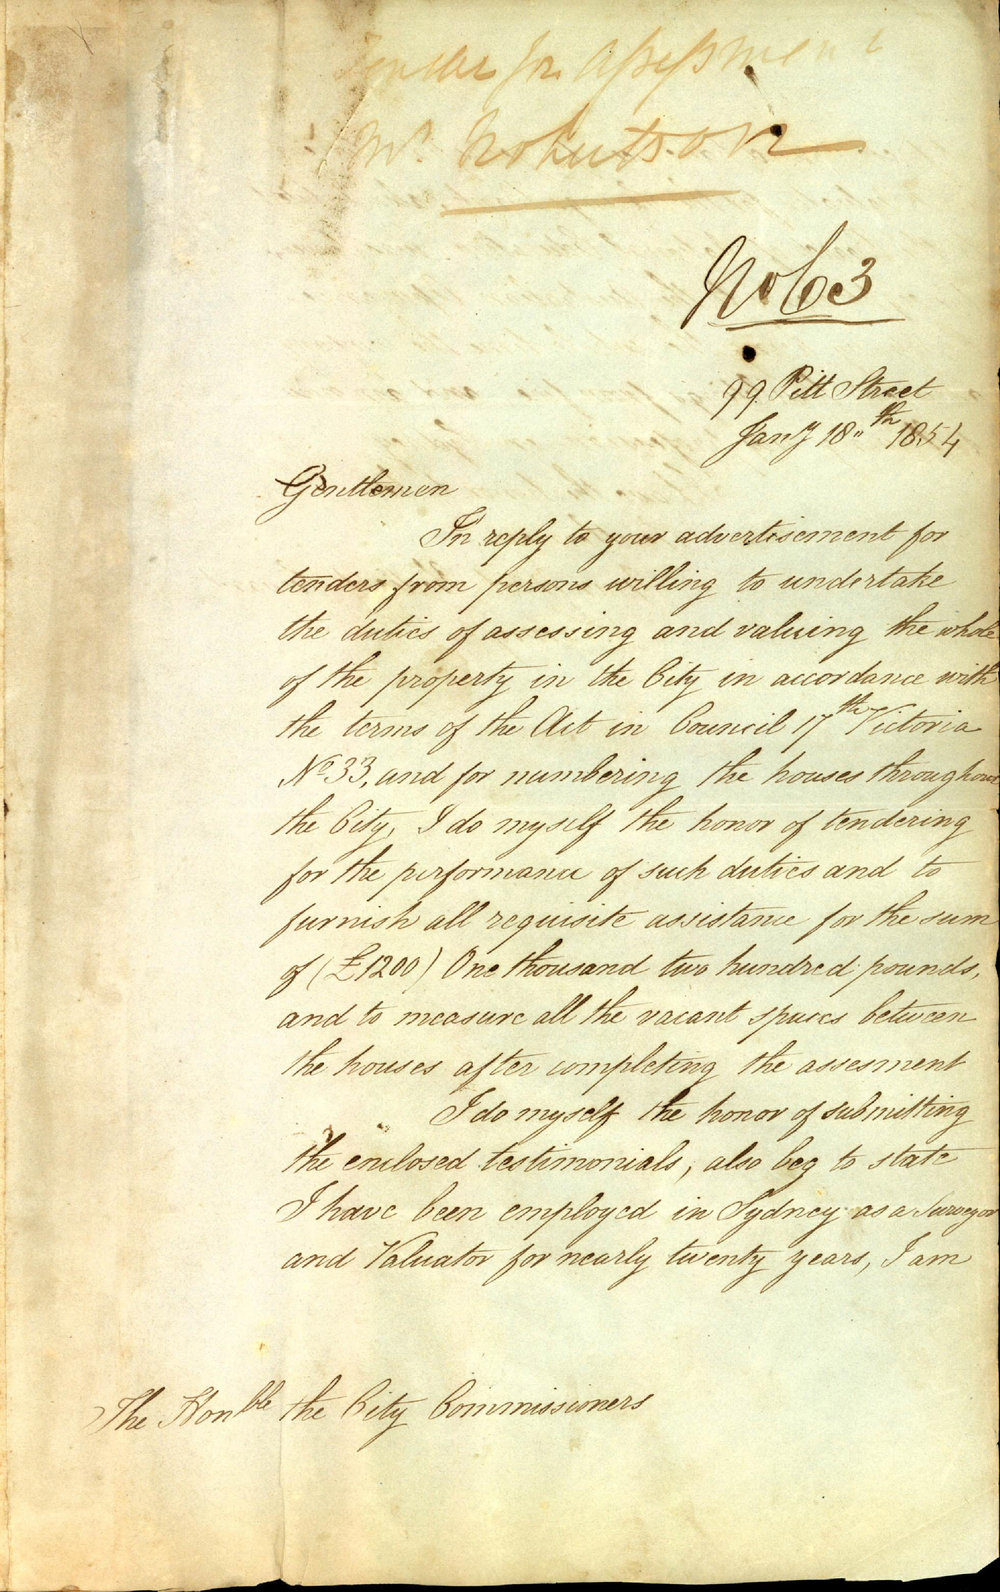 Tender for Assessment
Mr. Robertson
No 63
99 Pitt Street
Jany 18th 1854
Gentlemen
In reply to your advertisement for
tenders from persons willing to undertake
the duties of assessing and valuing the whole
of the property in the City in accordance with
the terms of the Act in Council 17th Victoria
No 33, and for numbering the houses throughout
the City, I do myself the honor of tendering
for the performance of such duties and to
furnish all requisite assistance for the sum
of (£1200) One thousand two hundred pounds,
and to measure all the vacant spaces between
the houses after completing the assesment
I do myself the honor of submitting
the enclosed testimonials, also beg to state
I have been employed in Sydney as a Surveyor
and Valuator for nearly twenty years, I am
The Honble the City Commissioners